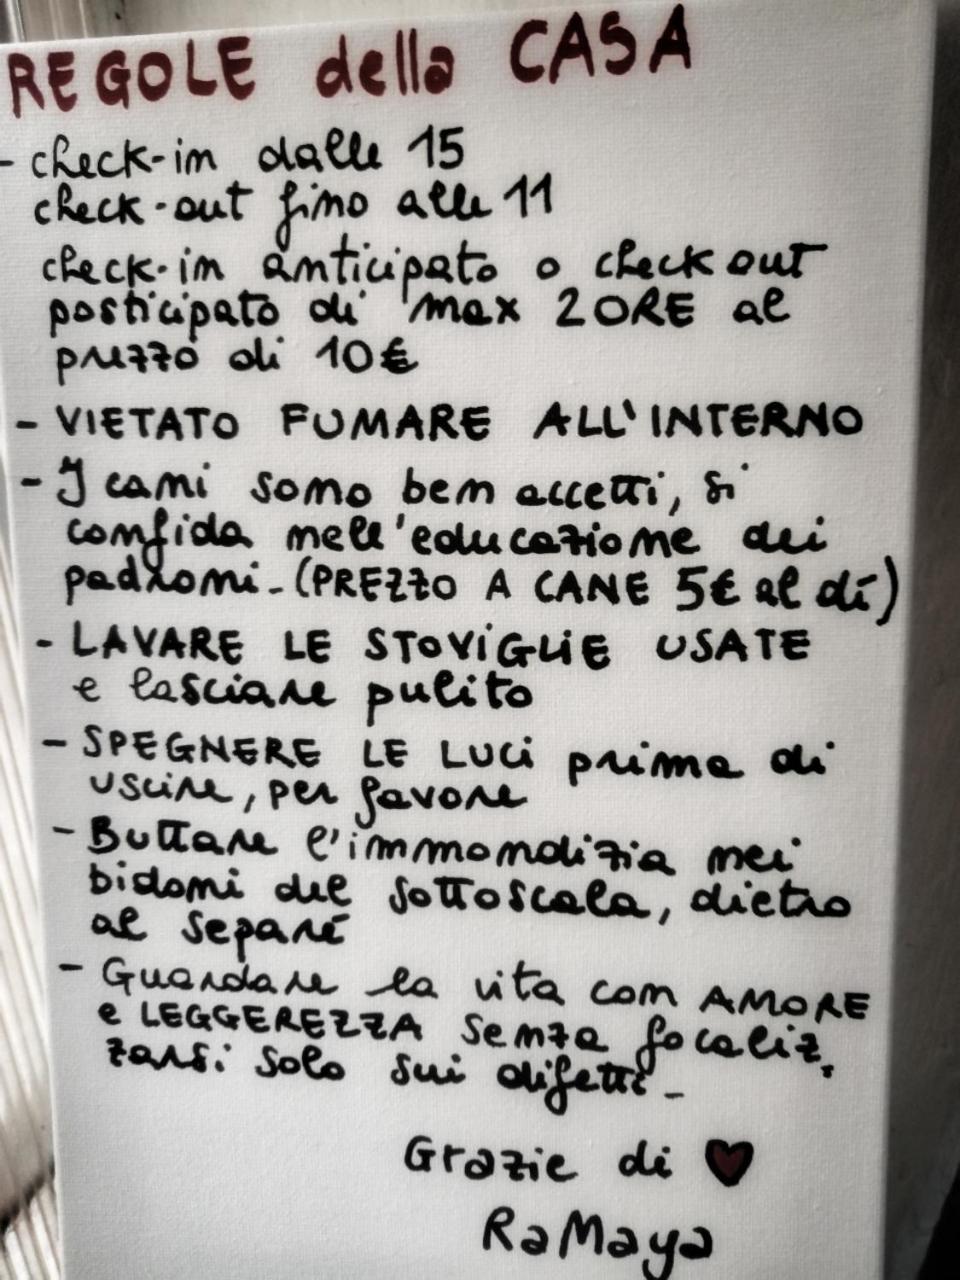 REGOLE della CASA
- check-in dalle 15
check-out fino alle 11
check-in anticipato o check out
posticipato di max 2 ORE al
prezzo di 10€
- VIETATO FUMARE ALL'INTERNO
- I cani sono ben accetti, si
confida nell'educazione dei
padroni - (PREZZO A CANE 5€ al dí)
- LAVARE LE STOVIGLIE USATE
e lasciare pulito
- SPEGNERE LE LUCi prima di
uscire, per favore
- Buttare l'immondizia nei
bidoni del sottoscala, dietro
al separé
- Guardare la vita con AMORE
e LEGGEREZZA senza focaliz.
zarsi solo sui difetti -
Grazie di ♥
RaMaya